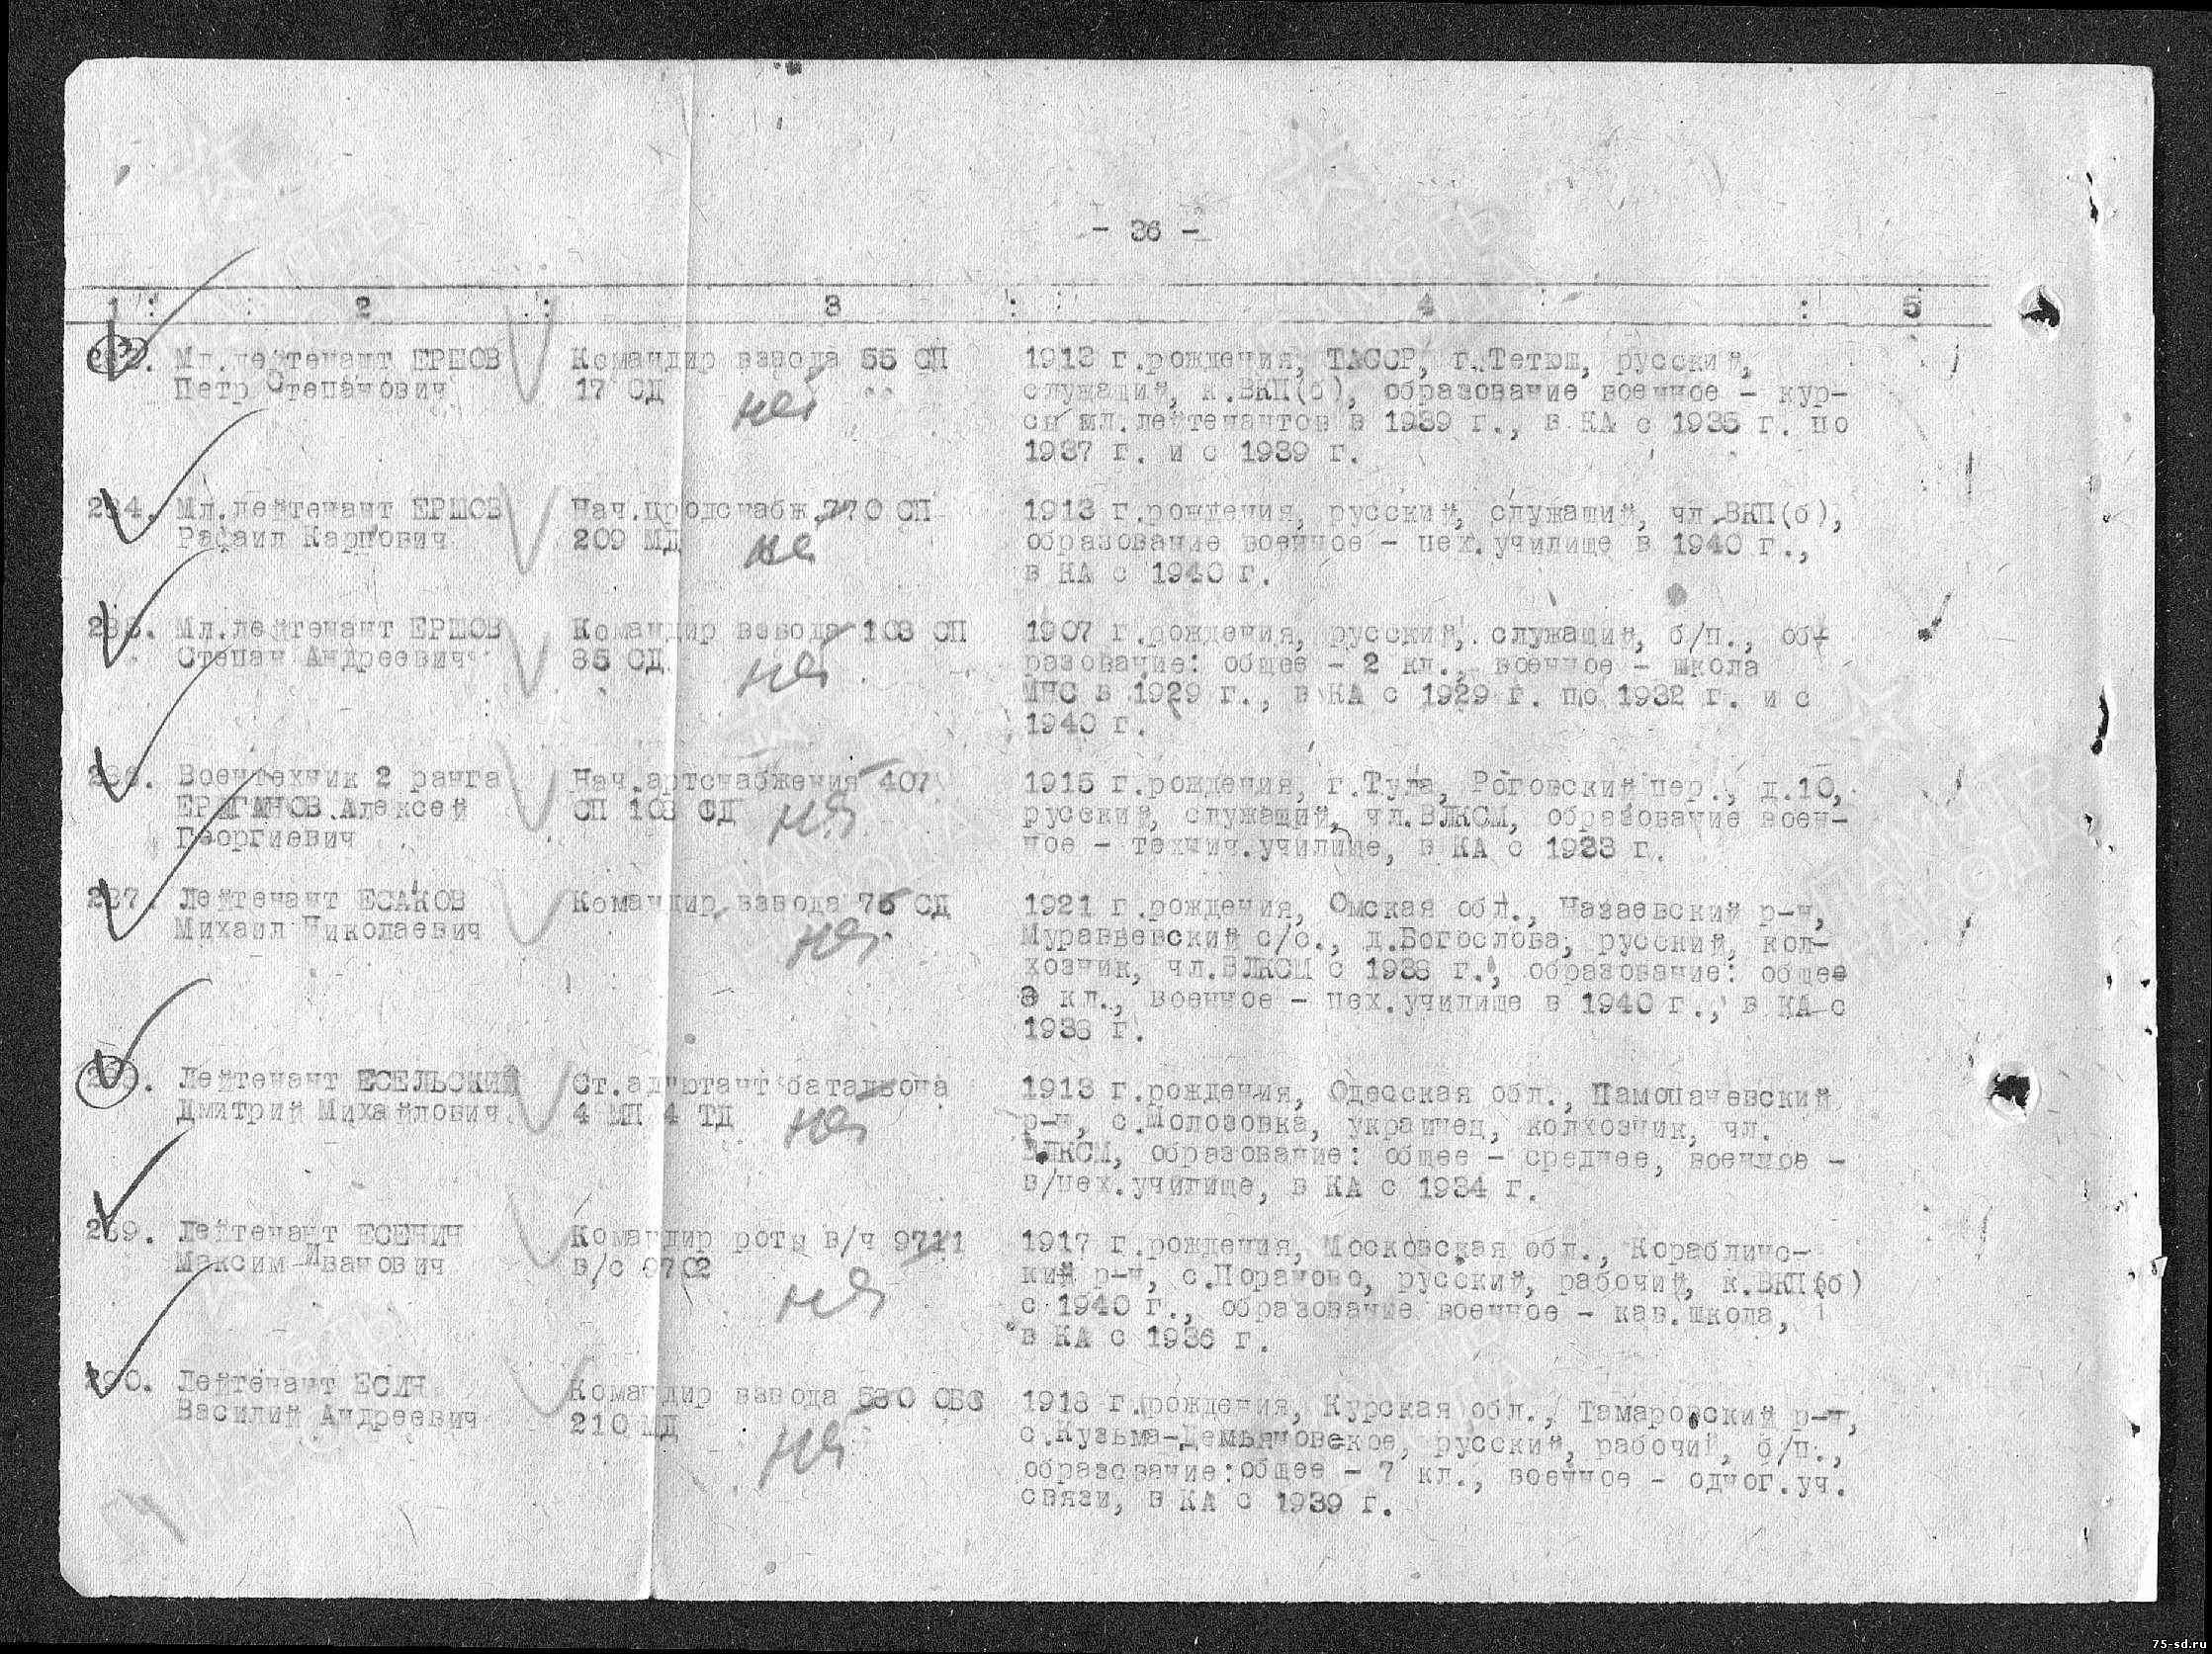 - 36 -
1 : 2 : 3 : 4 : 5
Мл.лейтенант ЕРШОВ Командир взвода 55 СП 1913 г.рождения, ТАССР, г.Тетюш, русский,
Петр Степанович 17 СД служащий, к.ВКП(б), образование военное - кур-
сы мл.лейтенантов в 1939 г., в КА с 1935 г. по
1937 г. и с 1939 г.
284. Мл.лейтенант ЕРШОВ Нач.продснабж. 770 СП 1913 г.рождения, русский, служащий, чл.ВКП(б),
Рафаил Карпович 209 МД образование военное - пех.училище в 1940 г.,
в КА с 1940 г.
285. Мл.лейтенант ЕРШОВ Командир взвода 103 СП 1907 г.рождения, русский, служащий, б/п., об-
Степан Андреевич 85 СД разование: общее - 2 кл., военное - школа
МНС в 1929 г., в КА с 1929 г. по 1932 г. и с
1940 г.
286. Воентехник 2 ранга Нач.артснабжения 407 1915 г.рождения, г.Тула, Роговский пер., д.10,
Алексей СП 108 СД русский, служащий, чл.ВЛКСМ, образование воен-
Георгиевич ное - технич.училище, в КА с 1933 г.
287. Лейтенант ЕСАКОВ Командир взвода 75 СД 1921 г.рождения, Омская обл., Называевский р-н,
Михаил Николаевич Муравьевский с/с., д.Богослова, русский, кол-
хозник, чл.ВЛКСМ с 1938 г., образование: общее
кл., военное - пех.училище в 1940 г., в КА с
1938 г.
Лейтенант ЕСЕЛЬСКИЙ Ст.адъютант батальона 1913 г.рождения, Одесская обл.,
Дмитрий Михайлович. 4 МП 4 ТД р-н, с.Молозовка, украинец, колхозник, чл.
ВЛКСМ, образование: общее - среднее, военное -
в/пех.училище, в КА с 1934 г.
289. Лейтенант ЕСЕНИН Командир роты в/ч 9711 1917 г.рождения, Московская обл., Кораблинс-
Максим Иванович в/с 9702 кий р-н, с.Пораново, русский, рабочий, к.ВКП(б)
с 1940 г., образование военное - кав.школа,
в КА с 1936 г.
290. Лейтенант ЕСИН Командир взвода 530 ОБС 1918 г.рождения, Курская обл., Тамаровский р-н,
Василий Андреевич 210 МД с.Кузьма-Демьяновское, русский, рабочий, б/п.,
образование:общее - 7 кл., военное - одног.уч.
связи, в КА с 1939 г.
75-sd.ru